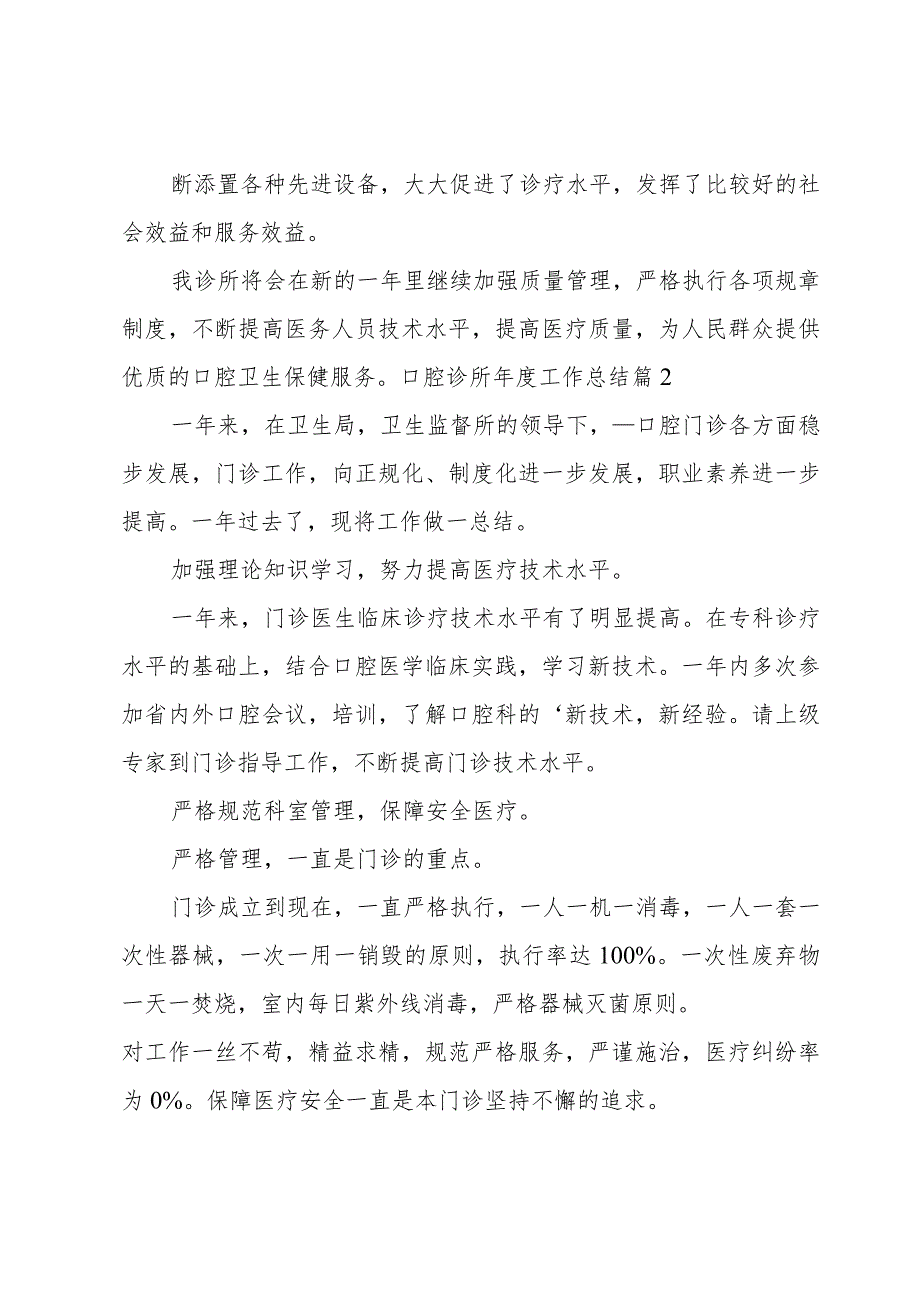 断添置各种先进设备，大大促进了诊疗水平，发挥了比较好的社
会效益和服务效益。
我诊所将会在新的一年里继续加强质量管理，严格执行各项规章
制度，不断提高医务人员技术水平，提高医疗质量，为人民群众提供
优质的口腔卫生保健服务。口腔诊所年度工作总结篇2
一年来，在卫生局，卫生监督所的领导下，—口腔门诊各方面稳
步发展，门诊工作，向正规化、制度化进一步发展，职业素养进一步
提高。一年过去了，现将工作做一总结。
加强理论知识学习，努力提高医疗技术水平。
一年来，门诊医生临床诊疗技术水平有了明显提高。在专科诊疗
水平的基础上，结合口腔医学临床实践，学习新技术。一年内多次参
加省内外口腔会议，培训，了解口腔科的‘新技术，新经验。请上级
专家到门诊指导工作，不断提高门诊技术水平。
严格规范科室管理，保障安全医疗。
严格管理，一直是门诊的重点。
门诊成立到现在，一直严格执行，一人一机一消毒，一人一套一
次性器械，一次一用一销毁的原则，执行率达100%。一次性废弃物
一天一焚烧，室内每日紫外线消毒，严格器械灭菌原则。
对工作一丝不苟，精益求精，规范严格服务，严谨施治，医疗纠纷率
为0%。保障医疗安全一直是本门诊坚持不懈的追求。